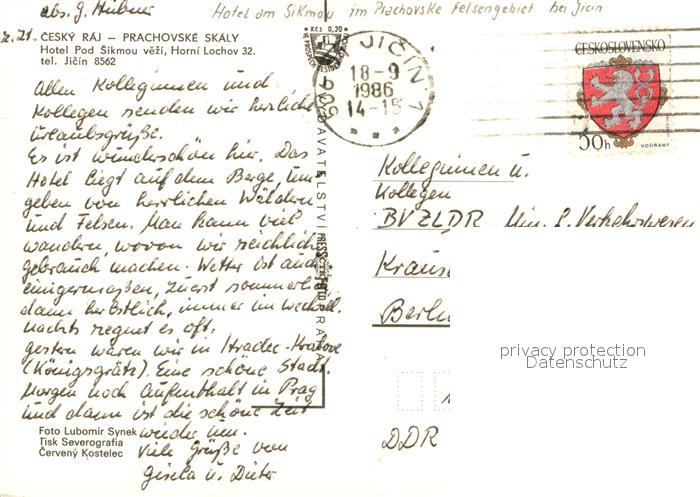 abs. G. Hübner
Hotel am Sikmou im Prachovske Felsengebiet bei Jicin
Z. 21.
ČESKÝ RÁJ – PRACHOVSKÉ SKÁLY
Hotel Pod Šikmou věží, Horní Lochov 32.
tel. Jičín 8562
Allen Kolleginnen und
Kollegen senden wir herzliche
Urlaubsgrüße.
Es ist wunderschön hier. Das
Hotel liegt auf dem Berge, um-
geben von herrlichen Wäldern
und Felsen. Man kann viel
wandern, wovon wir reichlich
gebrauch machen. Wetter ist auch
einigermaßen, zuerst sommerl.
dann herbstlich, immer im Wechsel.
nachts regnet es oft.
gestern waren wir in Hradec-Kralove
(Königsgrätz). Eine schöne Stadt.
Morgen noch Aufenthalt in Prag
und dann ist die schöne Zeit
wieder um.
Viele Grüße von
Gisela u. Dieter
Foto Lubomír Synek
Tisk Severografia
Červený Kostelec
Kčs 0,20
JIČÍN 1
18-9
1986
14-15
506 01
ČESKOSLOVENSKO
50 h
VODŇANY
Kolleginnen u.
Kollegen
BVZLDR Min. f. Verkehrswesen
Kraus
Berlin
DDR
privacy protection
Datenschutz